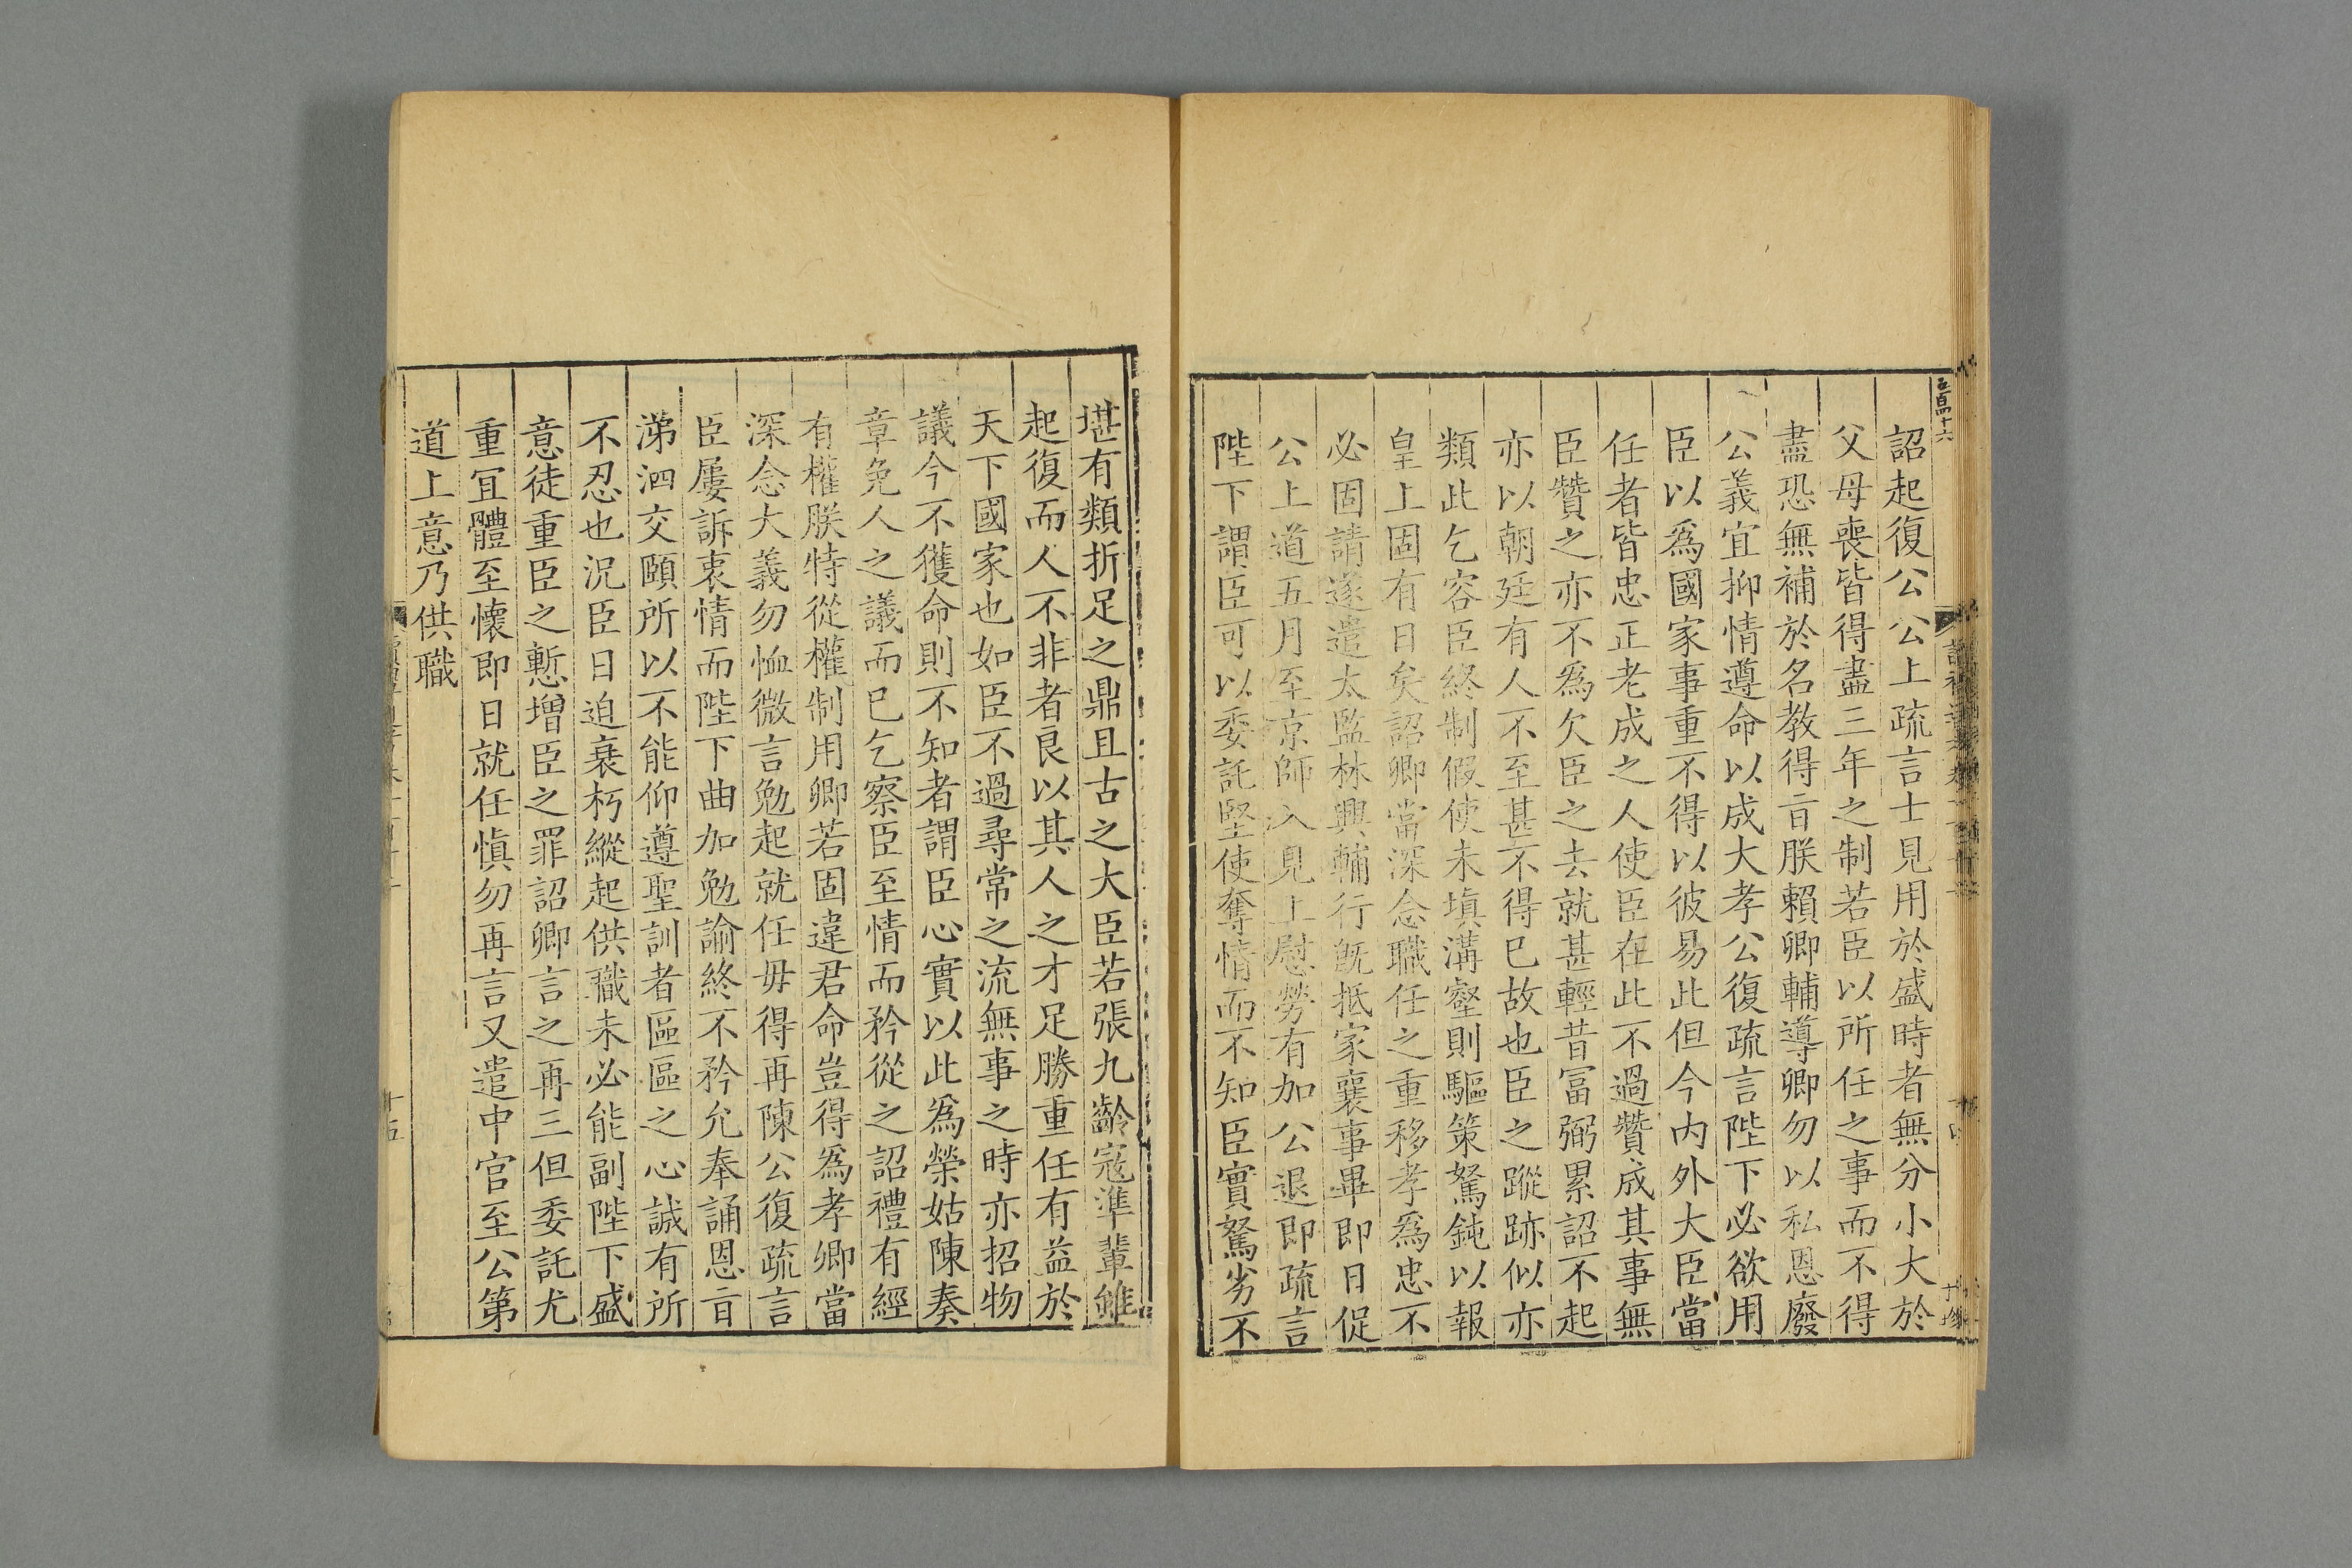 詔起復公公上疏言士見用於盛時者無分小大於
父母喪皆得盡三年之制若臣以所任之事而不得
盡恐無補於名教得㫖朕賴卿輔導卿勿以私恩廢
公義宜抑情遵命以成大孝公復疏言陛下必欲用
臣以爲國家事重不得以彼易此但今内外大臣當
任者皆忠正老成之人使臣在此不過贊成其事無
臣贊之亦不爲欠臣之去就甚輕昔冨弼累詔不起
亦以朝廷有人不至甚不得已故也臣之蹤跡似亦
類此乞容臣終制假使未填溝壑則驅策駑鈍以報
皇上固有日矣詔卿當深念職任之重移孝爲忠不
必固請遂遣太監林興輔行旣抵家襄事畢即日促
公上道五月至京師入見上慰勞有加公退即疏言
陛下謂臣可以委託堅使奪情而不知臣實駑劣不
堪有類折足之鼎且古之大臣若張九齡寇準輩雖
起復而人不非者良以其人之才足勝重任有益於
天下國家也如臣不過尋常之流無事之時亦招物
議今不獲命則不知者謂臣心實以此爲榮姑陳奏
章免人之議而已乞察臣至情而矜從之詔禮有經
有權朕特從權制用卿若固違君命豈得爲孝卿當
深念大義勿恤微言勉起就任毋得再陳公復疏言
臣屢訴衷情而陛下曲加勉諭終不矜允奉誦恩㫖
涕泗交頤所以不能仰遵聖訓者區區之心誠有所
不忍也況臣日迫衰朽縱起供職未必能副陛下盛
意徒重臣之慙增臣之罪詔卿言之再三但委託尤
重冝體至懷即日就任愼勿再言又遣中官至公第
道上意乃供職
十五